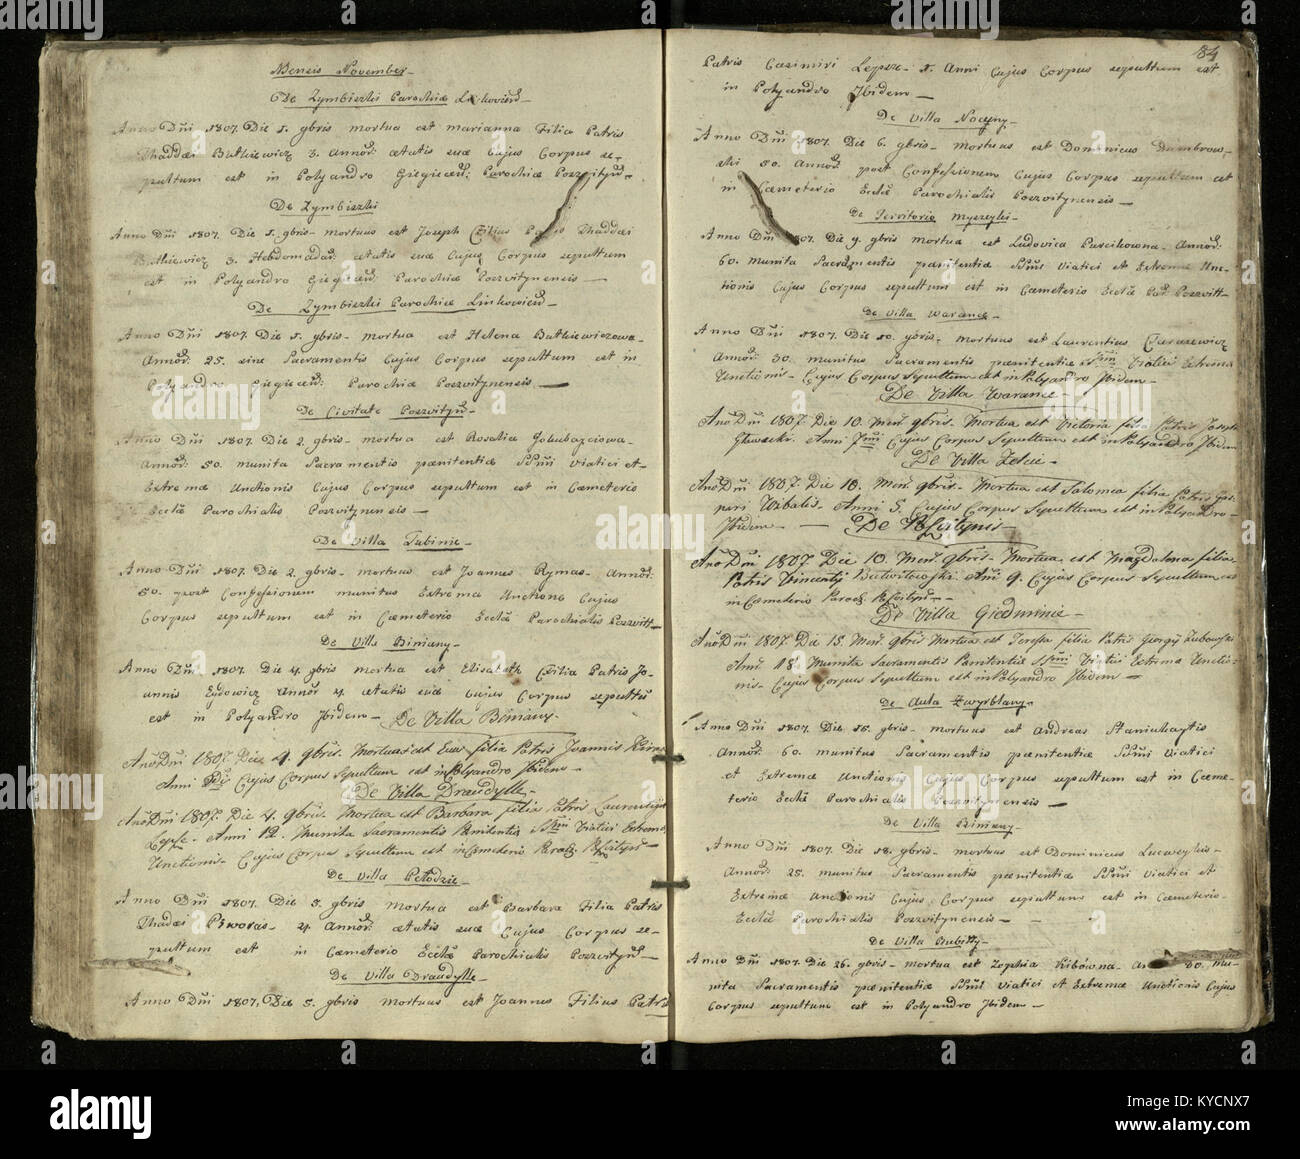 Mensis November
De Zymbiszki Parochiæ Linkovien̄
Anno Dn̄i 1807. Die 1. 9bris mortua est marianna Filia Patris
Thaddæi Butkiewicz 3. Annor̄: ætatis suæ Cujus Corpus se-
pultum est in Polyandro Giegiecen̄: Parochiæ Poszvityn̄ –
De Zymbiszki
Anno Dn̄i 1807. Die 1. 9bris – mortuus est Joseph Filius Patris Thaddæi
Butkiewicz 3. Hebdomadar̄: ætatis suæ Cujus Corpus sepultum
est in Polyandro Giegiecen̄ Parochiæ Poszvitynensis –
De Zymbiszki Parochiæ Linkovien̄ –
Anno Dn̄i 1807. Die 1. 9bris – mortua est Helena Butkiewiczowa
Annor̄: 25. sine Sacramentis Cujus Corpus sepultum est in
Polyandro Giegiecen̄: Parochiæ Poszvitynensis –
De Civitate Poszvityn̄ –
Anno Dn̄i 1807. Die 2. 9bris – mortua est Rosalia
Annor̄: 50. munita Sacramentis pænitentiæ SSmi Viatici et
Extremæ Unctionis Cujus Corpus sepultum est in Cæmeterio
Ecclæ Parochialis Poszvitynensis –
De Villa Tubinie –
Anno Dn̄i 1807. Die 2. 9bris – mortuus est Joannes Rymas – Annor̄:
50. post Confessionem munitus Extrema Unctione Cujus
Corpus sepultum est in Cæmeterio Ecclæ Parochialis Poszvitt –
De Villa Biniany –
Anno Dn̄i 1807. Die 4. 9bris mortua est Elisabeth Filia Patris Jo-
annis Annor̄ 4. ætatis suæ Cujus Corpus sepultū
est in Polyandro Ibidem – De Villa Biniany –
Año Dn̄i 1807. Die 4. 9bris. Mortua est Eva filia Patris Joannis
Anni Cujus Corpus Sepultum est in Polyandro Ibidem –
De Villa Draudylle –
Año Dn̄i 1807. Die 4. 9bris. Mortua est Barbara filia Patris Laurentij
Lepsze – Anni 12. Munita Sacramentis Pænitentiæ SSmi Viatici Extremæ
Unctionis – Cujus Corpus Sepultum est in Cæmeterio Paroch:
De Villa Pełodzie –
Anno Dn̄i 1807. Die 5. 9bris mortua est Barbara Filia Patris
Thadæi Piworas – 4 Annor̄: ætatis suæ Cujus Corpus se-
pultum est in Cæmeterio Ecclæ Parochialis Poszvityn̄ –
De Villa Draudylle –
Anno Dn̄i 1807. Die 5. 9bris mortuus est Joannes Filius Patris
84
Patris Casimiri Lepsze – 1. Anni Cujus Corpus sepultum est
in Polyandro Ibidem –
De Villa
Anno Dn̄i 1807. Die 6. 9bris – mortuus est Dominicus Dombrow-
ski 50. Annor̄ post Confessionem Cujus Corpus sepultum est
in Cæmeterio Ecclæ Parochialis Poszvitynensis –
De Territorio
Anno Dn̄i 1807. Die 9. 9bris mortua est Ludovica Annor̄:
60. munita Sacramentis pænitentiæ SSmi Viatici et Extremæ Unc-
tionis Cujus Corpus sepultum est in Cæmeterio Ecclæ Par Poszvitt –
De Villa Warance –
Anno Dn̄i 1807. Die 10. 9bris – mortuus est Laurentius
Annor̄: 30. munitus Sacramentis pænitentiæ SSmi Viatici Extremæ
Unctionis – Cujus Corpus Sepultum est in Polyandro Ibidem –
De Villa Warance –
Año Dn̄i 1807. Die 10. Men̄. 9bris. Mortua est Victoria filia Patris Josephi
Anni Cujus Corpus Sepultum est in Polyandro Ibidem
De Villa Zelcie –
Año Dn̄i 1807 Die 10. Men̄. 9bris – Mortua est Salomea filia Patris Gas-
peri Anni 5. Cujus Corpus Sepultum est in Polyandro –
Ibidem –
Año Dn̄i 1807. Die 10 Men̄. 9bris – Mortua est Magdalena filia
Patris Vincentij Anni 9. Cujus Corpus Sepultum est
in Cæmeterio Paroch:
De Villa Giedminie –
Año Dn̄i 1807. Die 15. Men̄. 9bris Mortua est Teressa filia Patris Georgij Zubowski
Anni 18. Munita Sacramentis Pænitentiæ SSmi Viatici Extremæ Unctio-
nis – Cujus Corpus Sepultum est in Polyandro Ibidem –
De Aula
Anno Dn̄i 1807. Die 15. 9bris – mortuus est Andreas
Annor̄: 60. munitus Sacramentis pænitentiæ SSmi Viatici
et Extremæ Unctionis Cujus Corpus sepultum est in Cæme-
terio Ecclæ Parochialis Poszvitynensis –
De Villa Biniany –
Anno Dn̄i 1807. Die 18. 9bris – mortuus est Dominicus
Annor̄: 25. munitus Sacramentis pænitentiæ SSmi Viatici et
Extremæ Unctionis Cujus Corpus sepultum est in Cæmeterio
Ecclæ Parochialis Poszvitynensis –
De Villa
Anno Dn̄i 1807. Die 26. 9bris – mortua est Zophia mu-
nita Sacramentis pænitentiæ SSmi Viatici et Extremæ Unctionis Cujus
Corpus sepultum est in Polyandro Ibidem –
alamy
Image ID: KYCNX7
www.alamy.com